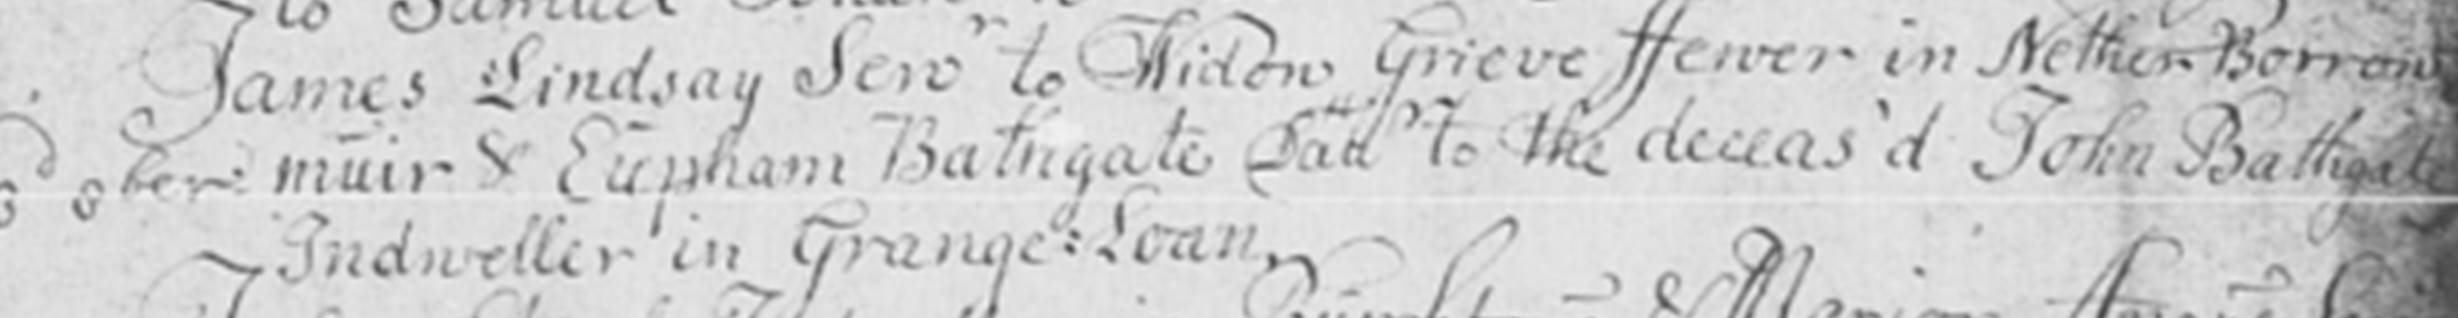 to Samuel
James Lindsay Servr to Widow Grieve ffewer in Nether Borrow
8ber muir & Eupham Bathgate Daur to the deceas'd John Bathgate
Indweller in Grange: Loan
& Marion